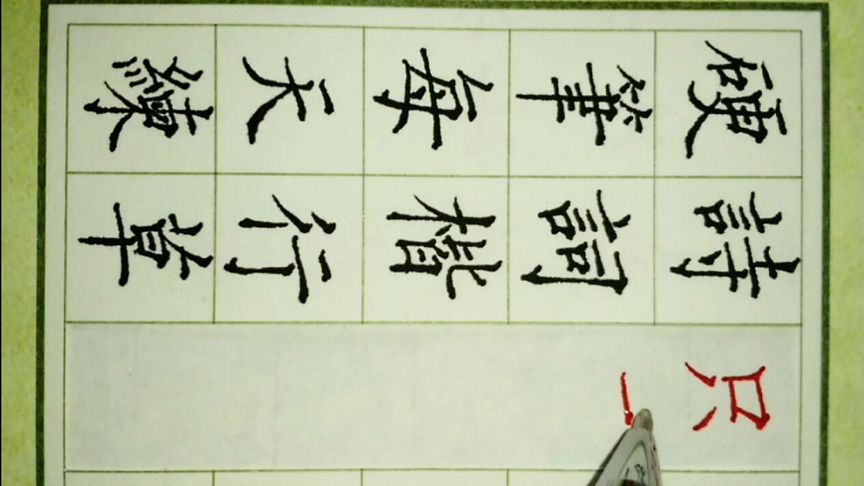 硬筆每天練
詩詞楷行草
只